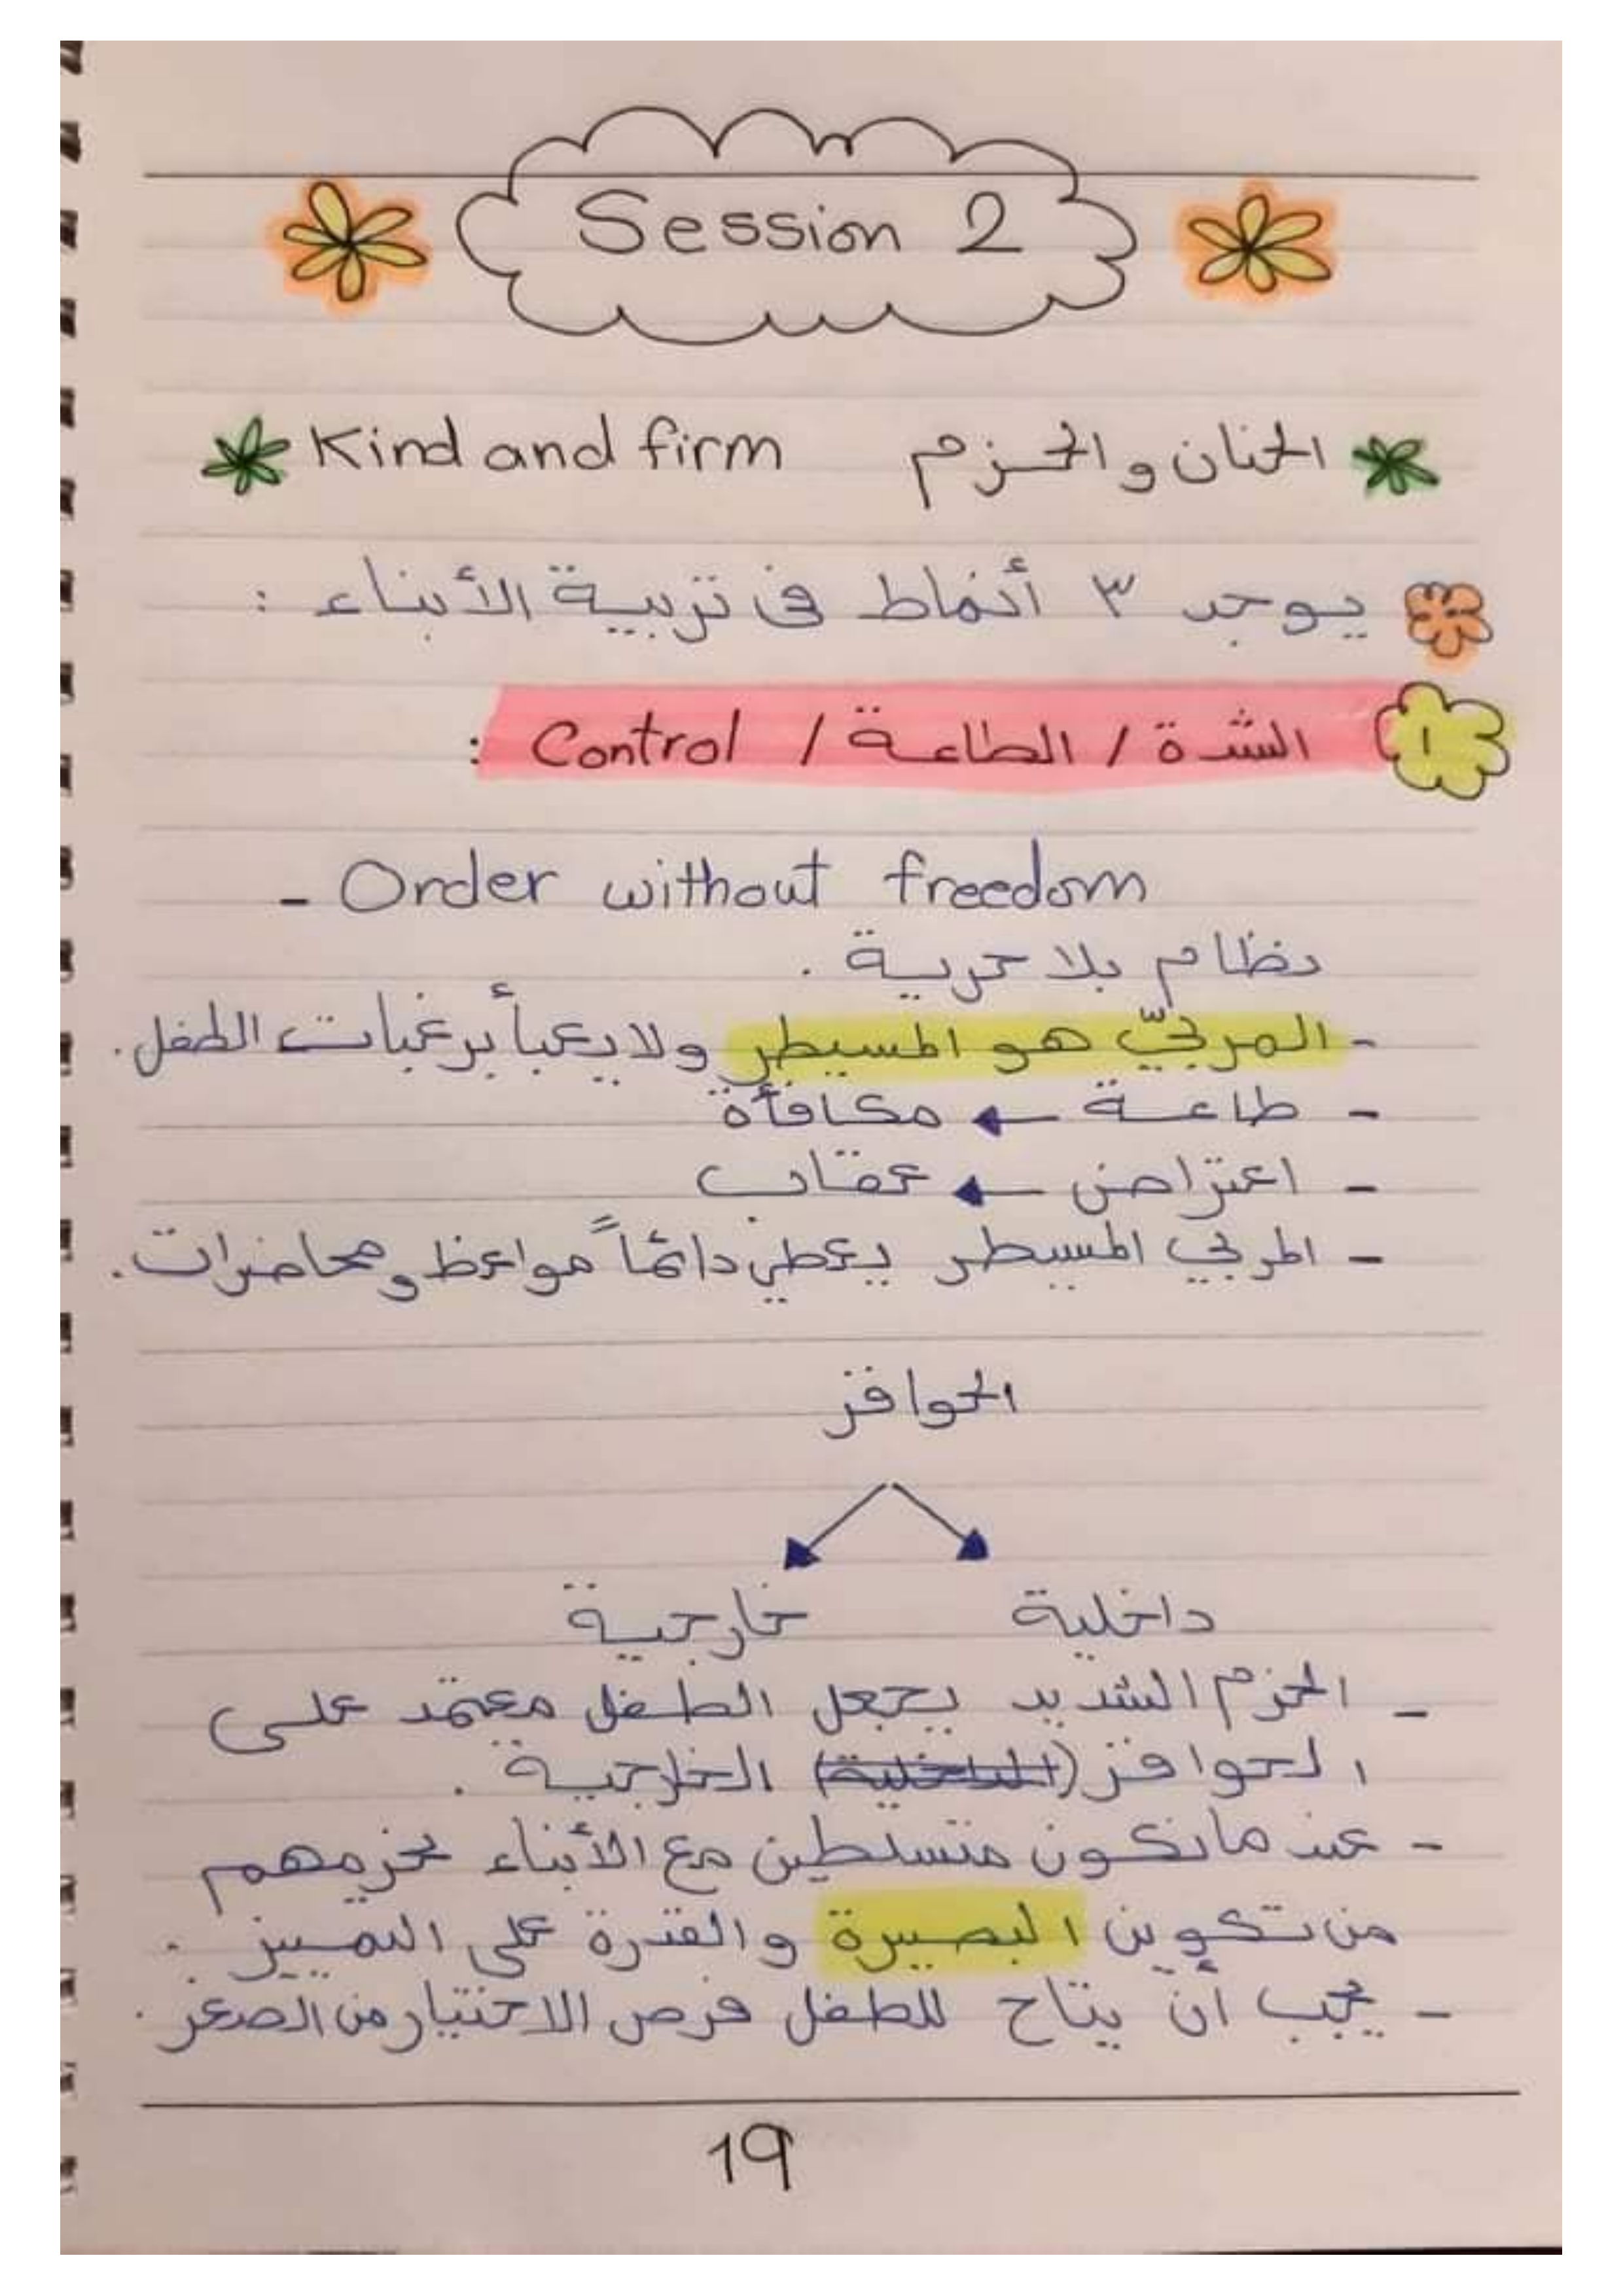 Session 2
Kind and firm الحنان والحزم
يوجد ٣ أنماط فى تربية الأبناء :
١ الشدة / الطاعة / Control :
- Order without freedom
نظام بلا حرية .
- المربيّ هو المسيطر ولا يعبأ برغبات الطفل .
- طاعة ← مكافأة
- اعتراض ← عقاب
- المربي المسيطر يعطي دائماً مواعظ ومحاضرات .
الحوافز
داخلية خارجية
- الحزم الشديد يجعل الطفل معتمد على
الحوافز (الداخلية) الخارجية .
- عندما نكون متسلطين مع الأبناء نحرمهم
من تكوين البصيرة والقدرة على التمييز .
- يجب أن يتاح للطفل فرص الاختيار من الصغر .
19